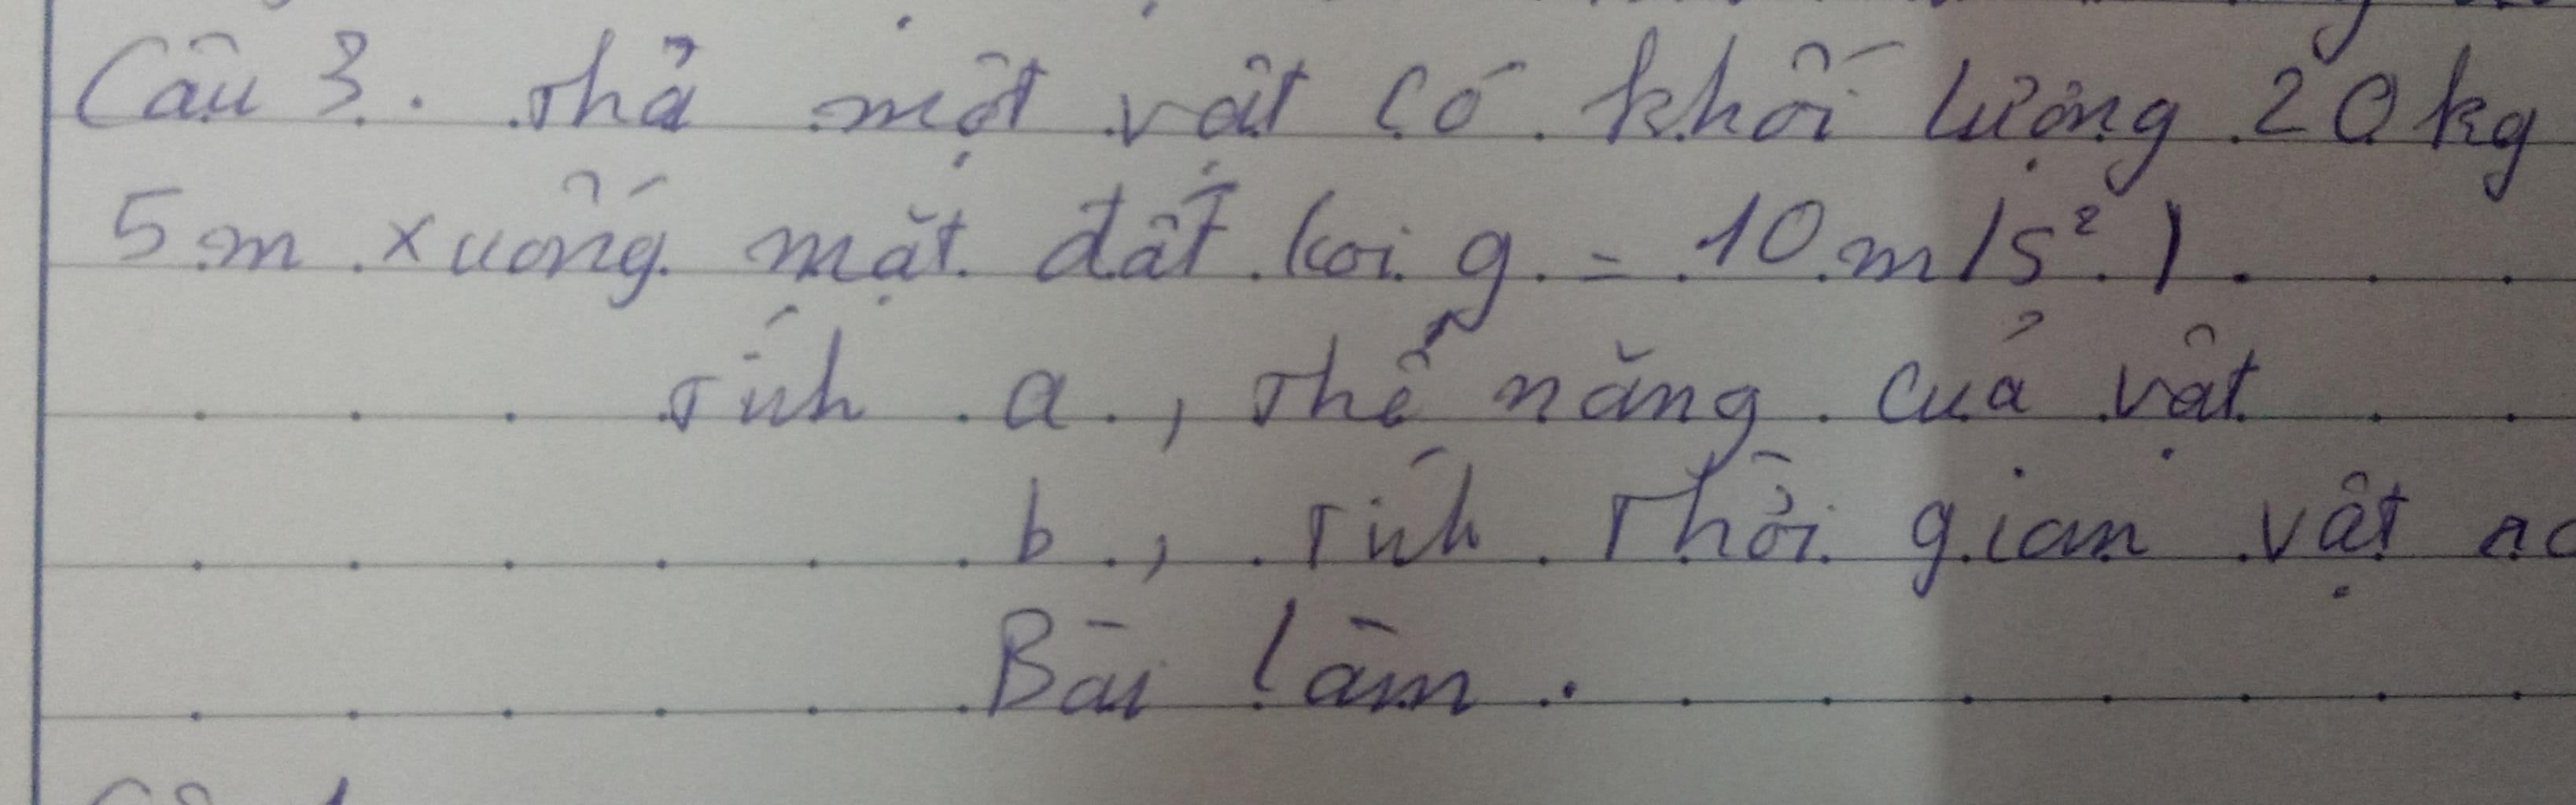 Câu 3. Thả một vật có khối lượng 20kg
5m xuống mặt đất (coi g = 10m/s²).
Tính a, Thế năng của vật
b, Tính Thời gian vật
Bài làm.